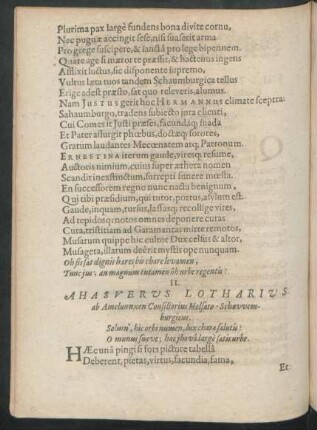 Plurima pax largè fundens bona divite cornu,
Nec pugnæ accingit sese, nisi suaserit arma
Pro grege suscipere, & sanctâ pro lege bipennem.
Quare age si mæror te præssit, & hactenus ingens
Afflixit luctus, sic disponente supremo,
Vultus læta tuos tandem Schaumburgica tellus
Erige adest præsto, sat quo releveris, alumus.
Nam JUSTUS gerit hoc HERMANNUS climate sceptra
Sahaumburgo, tradens subiecto jura clienti,
Cui Comes it Justi præses, facundaq; suada
Et Pater assurgit phœbus, doctæq; sorores,
Gratum laudantes Mecœnatem atq; Patronum.
ERNESTINA iterum gaude, viresq; resume,
Auctoris nimium, cuius super æthera nomen
Scandit inexstinctum, surrepti funere mœsta.
En successorem regno nunc nacta benignum,
Qui tibi præsidium, qui tutor, portus, asylum est.
Gaude, inquam, rursus, lassasq; recollige vires,
Ad tepidosq; notos omnem deponere curas
Cura, tristitiam ad Garamantas mitte remotos,
Musarum quippe hic culme Dux celsus & altor,
Musageta, illarum decerit mystis ope nunquam.
Oh sis fas dignis hæres his chare levamen,
Tunc jus: an magnum tutamen sis urbe regentis?
II.
AHASVERUS LOTHARIUS
ab Amelunxen Consiliarius Hassato-Schavvem-
burgicus.
Solum, hic orbi numen, lux chara salutis!
O munus suave; hac jhova largè satis urbe.
HÆc unâ pingi si fors picturæ tabellâ
Deberent, pietas, virtus, facundia, fama,
Et